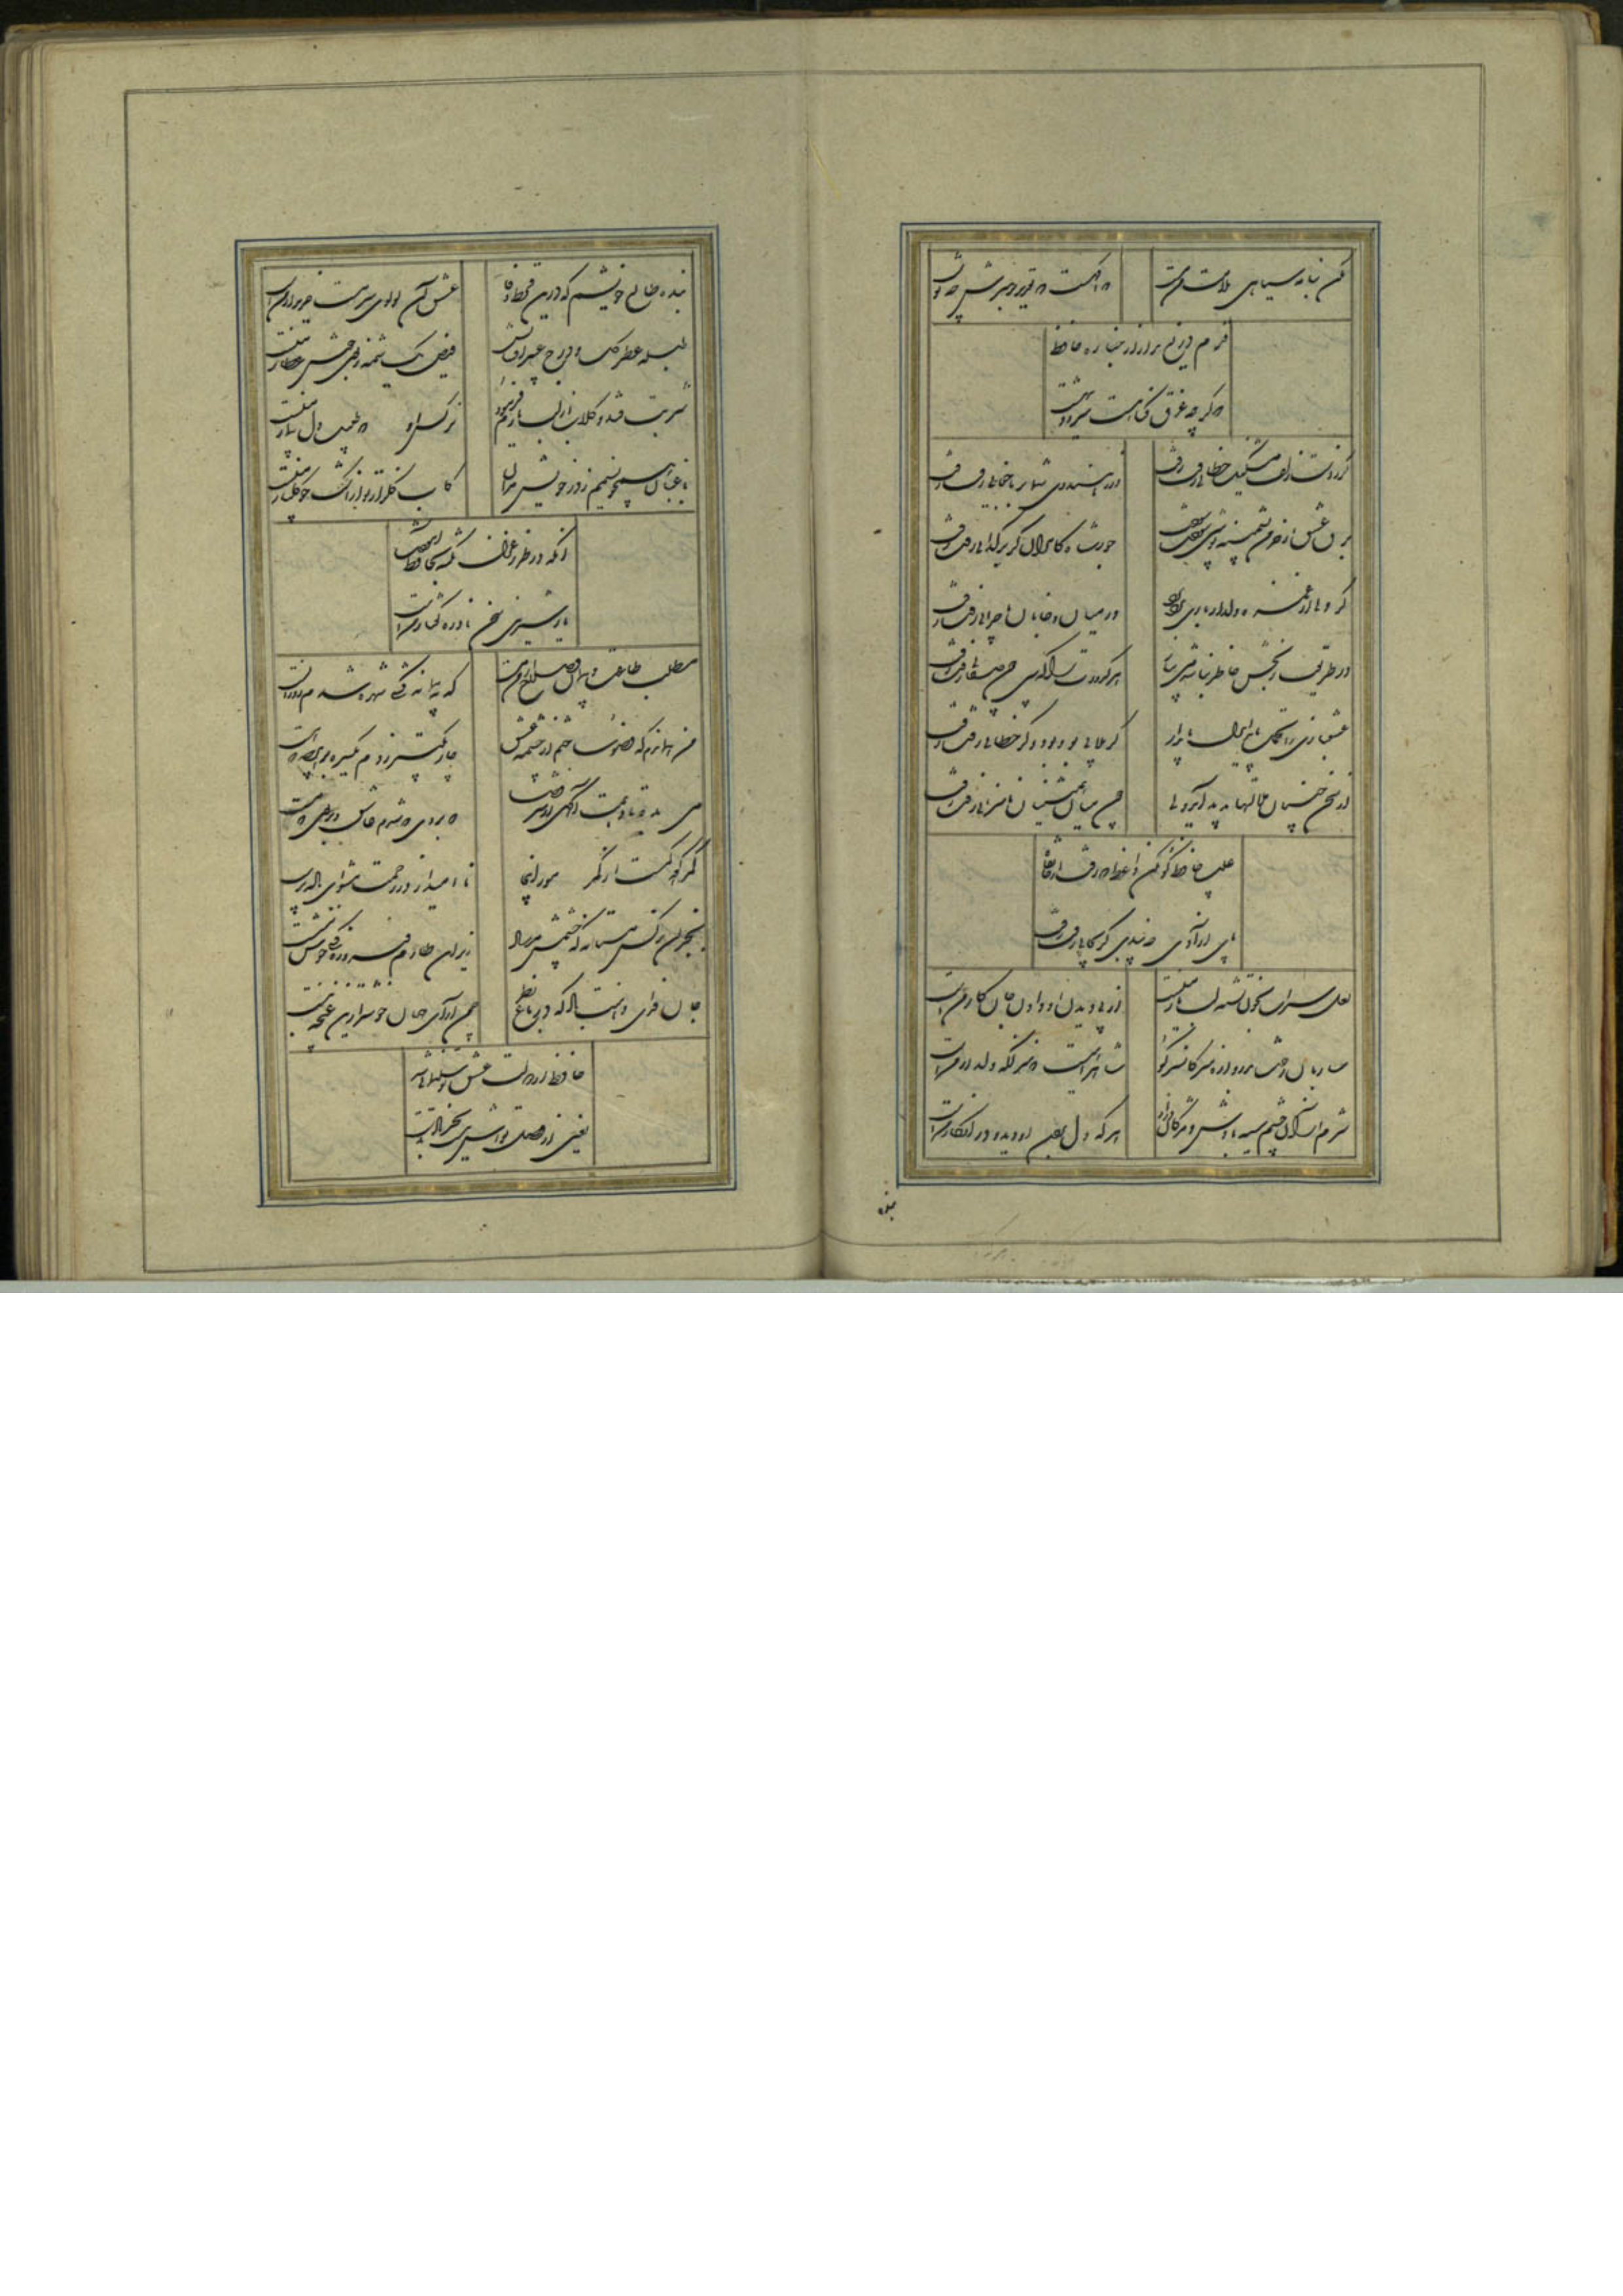 مکن بنامه سیاهی ملامت من مست
که آگهست که تقدیر بر سرش چه نوشت
قدم دریغ مدار از جنازه حافظ
که گر چه غرق گناهست میرود ببهشت
گر ز دست زلف مشکینت خطایی رفت رفت
ور ز هندوی شما بر ما جفایی رفت رفت
برق عشق ار خرمن پشمینه پوشی سوخت سوخت
جور شاه کامران گر بر گدایی رفت رفت
گر دلی از غمزه دلدار باری برد برد
در میان جان و جانان ماجرایی رفت رفت
در طریقت رنجش خاطر نباشد می بیار
هر کدورت را که بینی چون صفایی رفت رفت
عشقبازی را تحمل باید ای دل پای دار
گر ملالی بود بود و گر خطایی رفت رفت
از سخن چینان ملالتها پدید آمد ولی
چون میان همنشینان ناسزایی رفت رفت
عیب حافظ گو مکن واعظ که رفت از خانقاه
پای آزادی چه بندی گر بجایی رفت رفت
لعل سیراب بخون تشنه لب یار منست
از پی دیدن او دادن جان کار منست
ساربان رخت بدروازه مبر کان سر کو
شاهراهیست که منزلگه دلدار منست
شرم از آن چشم سیه بادش و مژگان دراز
هر که دل بردن او دید و در انکار منست
بنده
بنده طالع خویشم که درین قحط وفا
عشق آن لولی سرمست خریدار منست
طبله عطر گل و درج عبیر افشانش
فیض یک شمه ز بوی خوش عطار منست
شربت قند و گلاب از لب یارم فرمود
نرگس او که طبیب دل بیمار منست
باغبان همچو نسیمم ز در خویش مران
کاب گلزار تو از اشک چو گلنار منست
آنکه در طرز غزل نکته بحافظ آموخت
یار شیرین سخن نادره گفتار منست
مطلب طاعت و پیمان و صلاح از من مست
که به پیمانه کشی شهره شدم روز الست
من همان دم که وضو ساختم از چشمه عشق
چار تکبیر زدم یکسره بر هر چه که هست
می بده تا دهمت آگهی از سر قضا
که بروی که شدم عاشق و از بوی که مست
کمر کوه کمست از کمر مور اینجا
ناامید از در رحمت مشو ای باده پرست
بجز آن نرگس مستانه که چشمش مرساد
زیر این طارم فیروزه کسی خوش ننشست
جان فدای دهنت باد که در باغ نظر
چمن آرای جهان خوشتر ازین غنچه نبست
حافظ از دولت عشق تو سلیمانی شد
یعنی از وصل تواش نیست بجز باد بدست